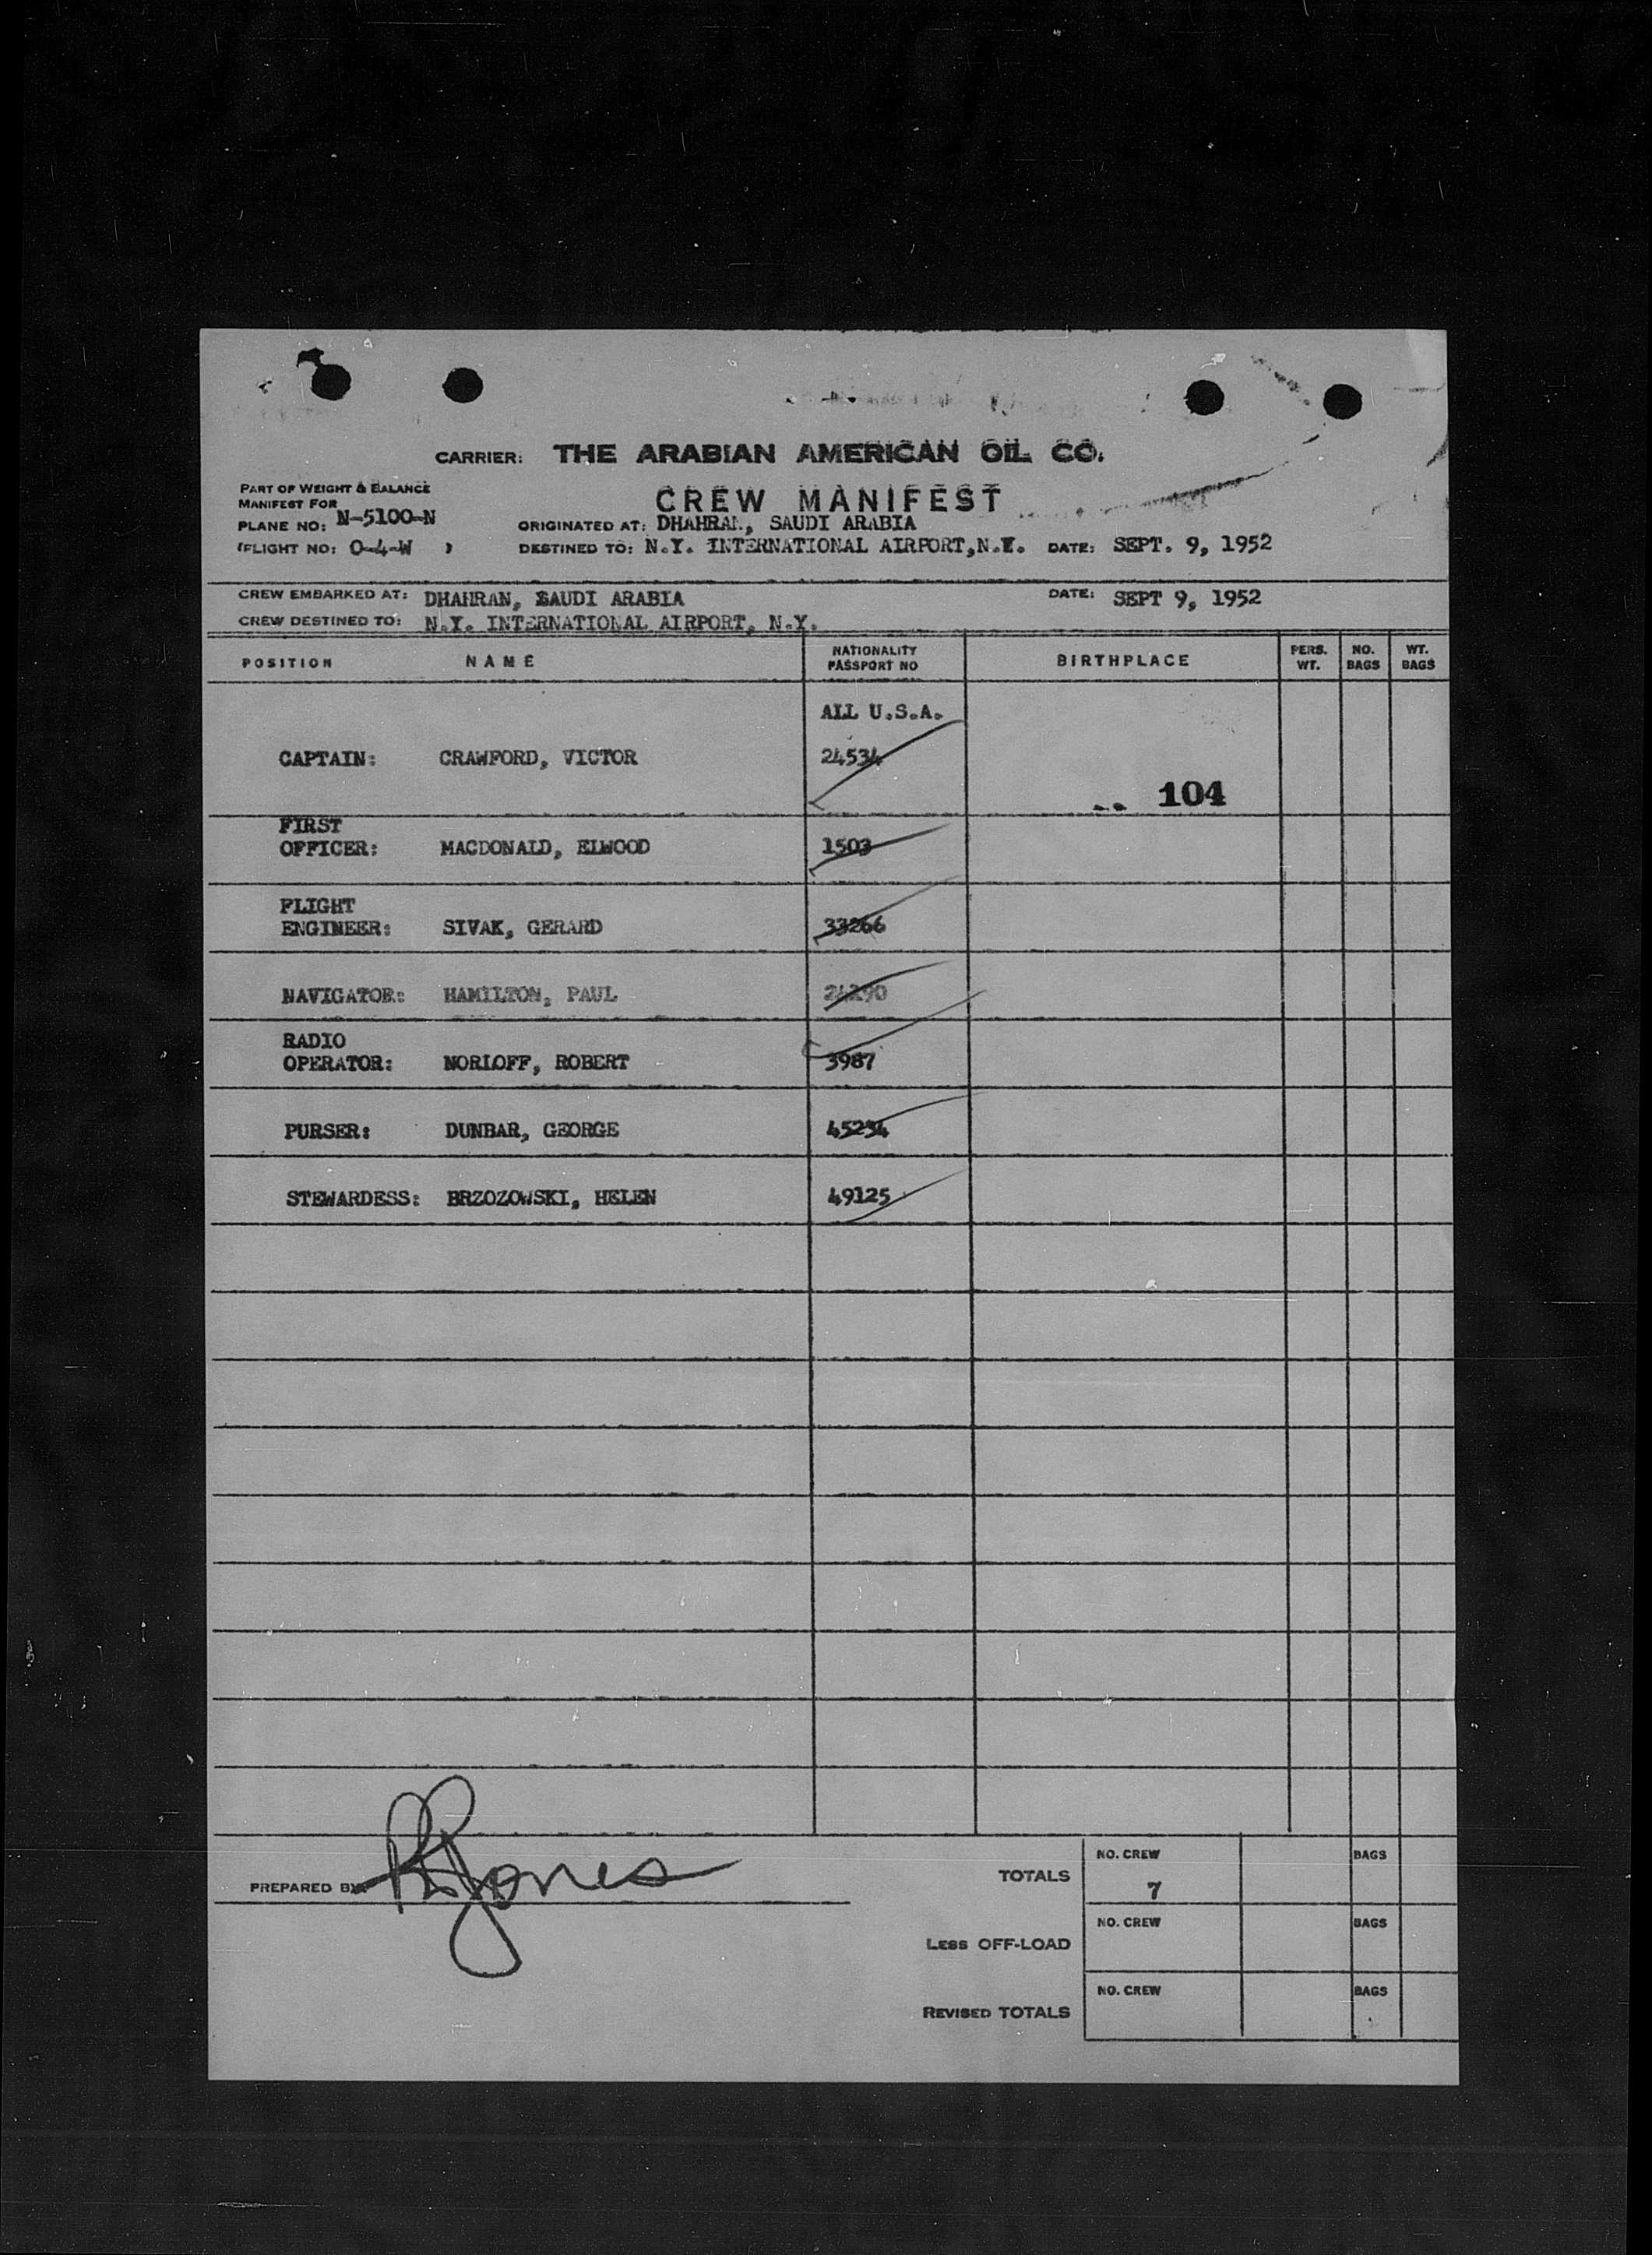 CARRIER: THE ARABIAN AMERICAN OIL CO.
PART OF WEIGHT & BALANCE
MANIFEST FOR
CREW MANIFEST
PLANE NO: N-5100-N ORIGINATED AT: DHAHRAN, SAUDI ARABIA
(FLIGHT NO: O-4-W ) DESTINED TO: N.Y. INTERNATIONAL AIRPORT,N.Y. DATE: SEPT. 9, 1952
CREW EMBARKED AT: DHAHRAN, SAUDI ARABIA DATE: SEPT 9, 1952
CREW DESTINED TO: N.Y. INTERNATIONAL AIRPORT, N.Y.
POSITION NAME NATIONALITY PASSPORT NO BIRTHPLACE PERS. WT. NO. BAGS WT. BAGS
ALL U.S.A.
CAPTAIN: CRAWFORD, VICTOR 24534
104
FIRST
OFFICER: MACDONALD, ELWOOD 1503
FLIGHT
ENGINEER: SIVAK, GERARD 33266
NAVIGATOR: HAMILTON, PAUL
RADIO
OPERATOR: NORLOFF, ROBERT 3987
PURSER: DUNBAR, GEORGE 45234
STEWARDESS: BRZOZOWSKI, HELEN 49125
PREPARED BY: Jones
TOTALS NO. CREW 7 BAGS
LESS OFF-LOAD NO. CREW BAGS
REVISED TOTALS NO. CREW BAGS